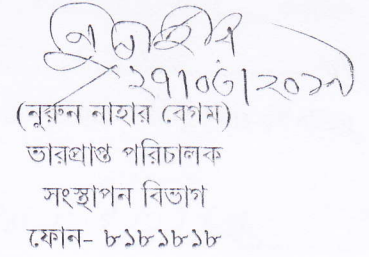 ২৭|০৩|২০১৭
(নুরুন নাহার বেগম)
ভারপ্রাপ্ত পরিচালক
সংস্থাপন বিভাগ
ফোন- ৮১৮১৮১৮